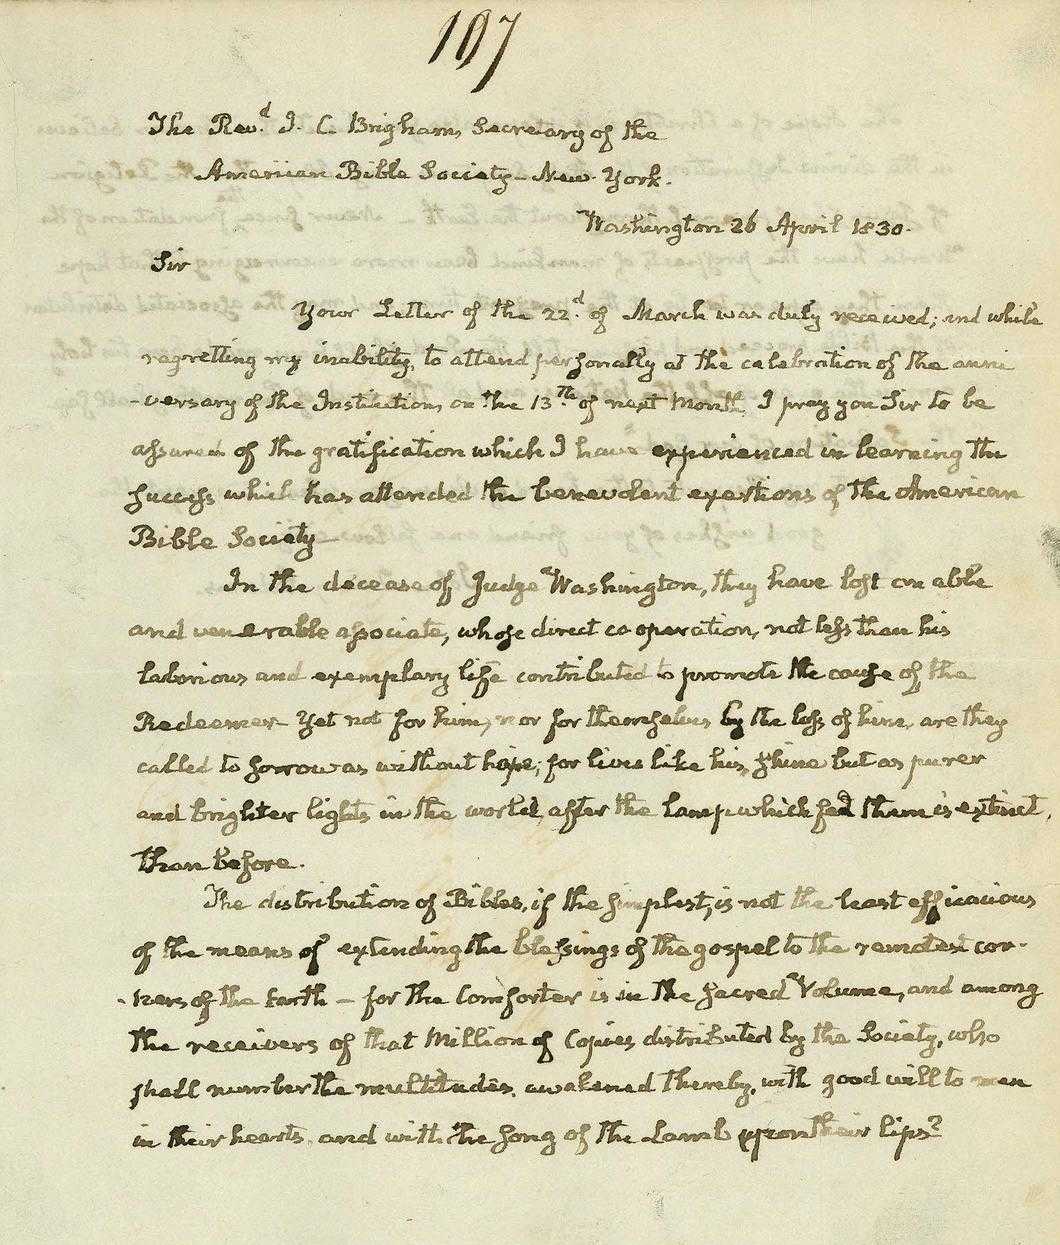 107
The Revd. J. C. Brigham, Secretary of the
American Bible Society - New-York.
Washington 26 April 1830.
Sir
Your Letter of the 22d. of March was duly received; and while
regretting my inability, to attend personally at the celebration of the anni
-versary of the Institution, on the 13th. of next Month, I pray you Sir to be
assured of the gratification which I have experienced in learning the
success which has attended the benevolent exertions of the American
Bible Society—
In the decease of Judge Washington, they have lost an able
and venerable associate, whose direct co operation, not less than his
laborious and exemplary life contributed to promote the cause of the
Redeemer— Yet not for him, nor for themselves by the loss of him, are they
called to sorrow as without hope; for lives like his, shine but as purer
and brighter lights in the world, after the lamp which fed them is extinct,
than before.
The distribution of Bibles, if the simplest, is not the least efficacious
of the means of extending the blessings of the gospel to the remotest cor-
-ners of the Earth — for the Comforter is in the sacred Volume, and among
the receivers of that Million of Copies distributed by the Society, who
shall number the multitudes, awakened thereby, with good will to man
in their hearts, and with the song of the Lamb upon their lips?